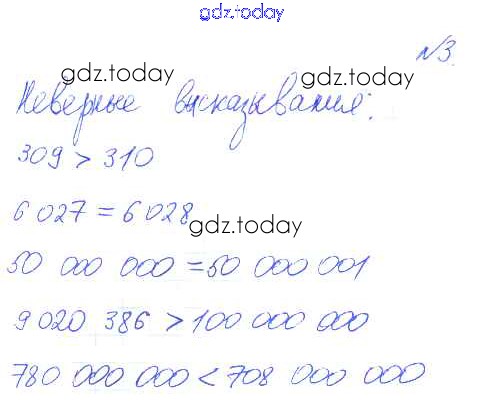 gdz.today
№3.
gdz.today gdz.today
Неверные высказывания:
309 > 310
6 027 = 6 028
gdz.today
50 000 000 = 50 000 001
9 020 386 > 100 000 000
780 000 000 < 708 000 000